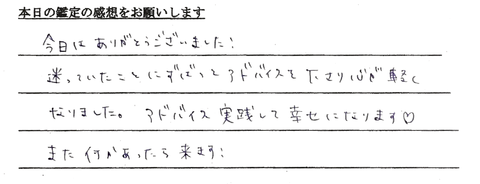 本日の鑑定の感想をお願いします
今日はありがとうございました!
迷っていたことにずばっとアドバイスを下さり心が軽く
なりました。アドバイス実践して幸せになります♡
また何かあったら来ます!